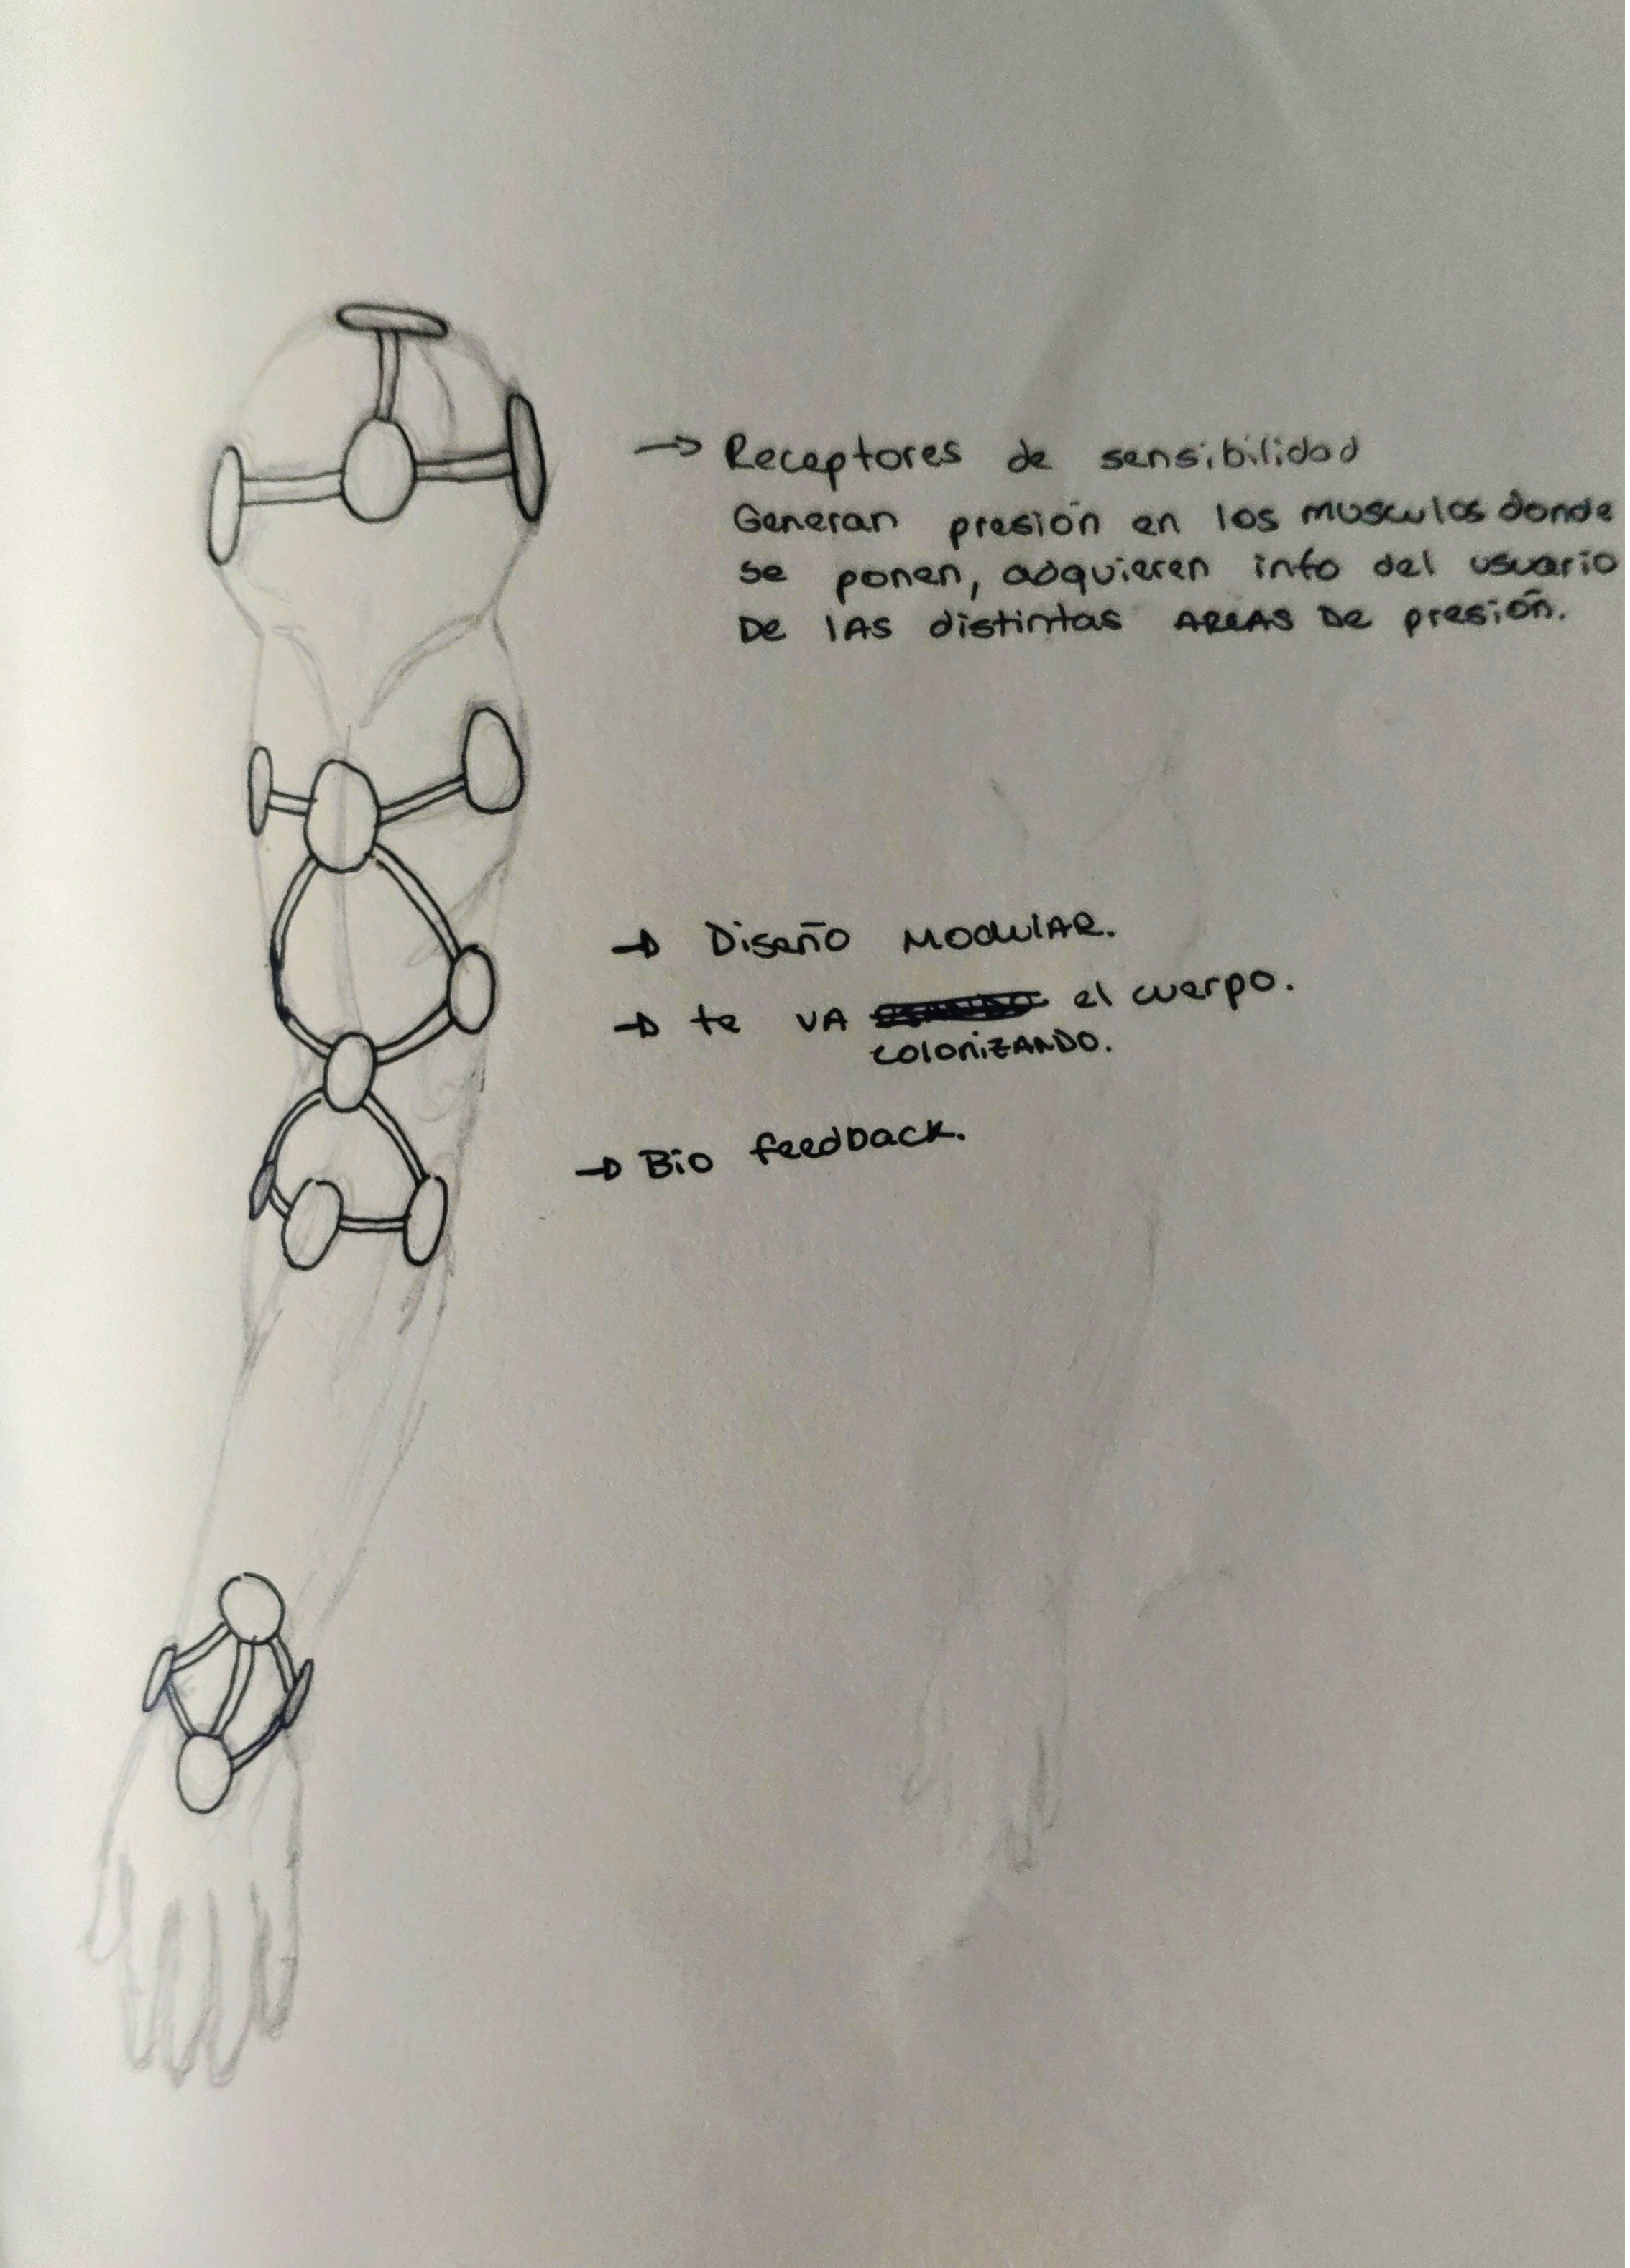 → Receptores de sensibilidad
Generan presión en los musculos donde
se ponen, adquieren info del usuario
De lAs distintas AREAS De presión.
→ Diseño ModulAR.
→ te vA el cuerpo.
colonizANDO.
→ Bio feedback.